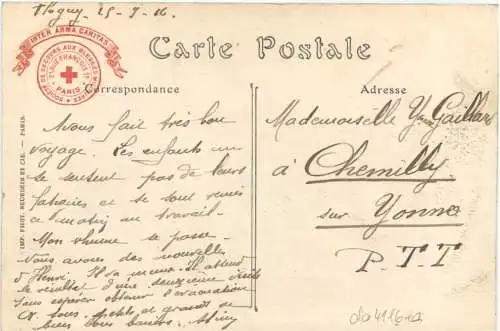 Heguy 25-7-16
INTER ARMA CARITAS
SOCIÉTÉ DE SECOURS AUX BLESSÉS MILITAIRES
21 RUE FRANÇOIS 1ER
PARIS
Carte Postale
Correspondance
Adresse
IMP. PHOT. NEURDEIN ET CIE. — PARIS.
Avons fait très bon
voyage. Les enfants ne
se sentent pas de leurs
fatigues et se sont remis
ce matin au travail.
Mon rhume se passe.
Nous avons des nouvelles
d'Henri. Il va mieux. Il attend
le résultat d'une deuxième visite
sans espérer obtenir l'évacuation
à tous et de
bien bons baisers.
Mademoiselle Y Gaillard
à Chemilly
sur Yonne
P. T T